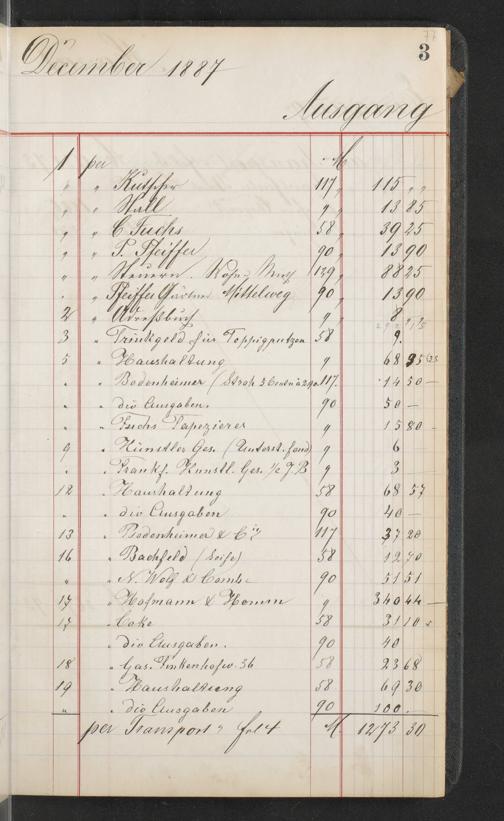 77
3
December 1887
Ausgang
1 per M
" " Kutscher 117 " 115 " "
" " Stall 9 " 13 85
" " C Fuchs 58 " 39 25
" " P. Pfeiffer 90 " 13 90
" " Steuern. 139 " 88 25
" " Pfeiffer Gärtner Mittelweg 90 " 13 90
2 " Adreßbuch 9 " 8
3 " Trinkgeld für Teppigputzen 58 9.
5 " Haushaltung 9 68 95
" " Bodenheimer (Stroh 5 Centn à 2 90 117. 14 50 —
" " div Ausgaben. 90 50 —
" " Fuchs Tapezierer 9 15 80 —
9 " Künstler Ges. (Unterst. fond) 9 6
" " Frankf. Kunstl. Ges. ½ J. B 9 3 —
12 " Haushaltung 58 68 57
" " div Ausgaben 90 40 —
13 " Bodenheimer & Cie 117 37 20
16 " Bachfeld (Seife) 58 12 70
" " N. Wolf & Comb. 90 51 51
17 " Hofmann & Homm 9 340 44 —
17 " Coke 58 31 10
" div Ausgaben. 90 40
18 " Gas. Finkenhofstr. 36 58 23 68
19 " Haushaltung 58 69 30
" " div Ausgaben 90 100.
per Transport fol 4 M. 1273 30